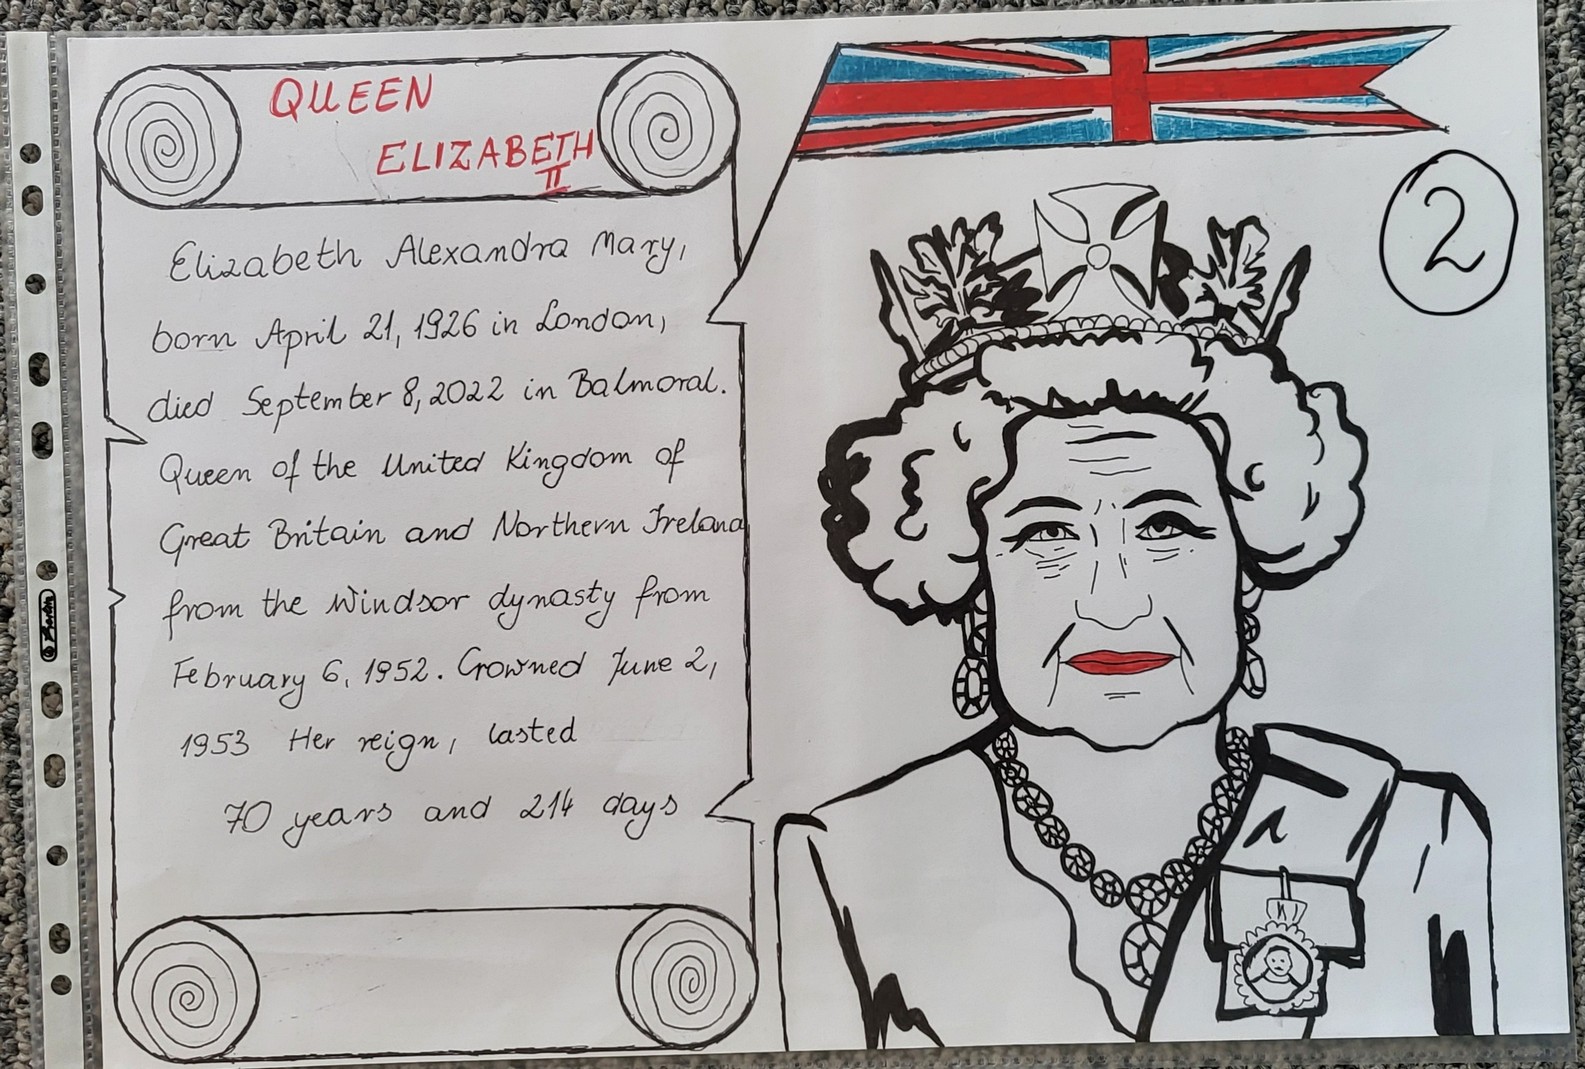 QUEEN
ELIZABETH
II
Elizabeth Alexandra Mary,
born April 21, 1926 in London,
died September 8, 2022 in Balmoral.
Queen of the United Kingdom of
Great Britain and Northern Ireland
from the Windsor dynasty from
February 6, 1952. Crowned June 2,
1953 Her reign, lasted
70 years and 214 days
2